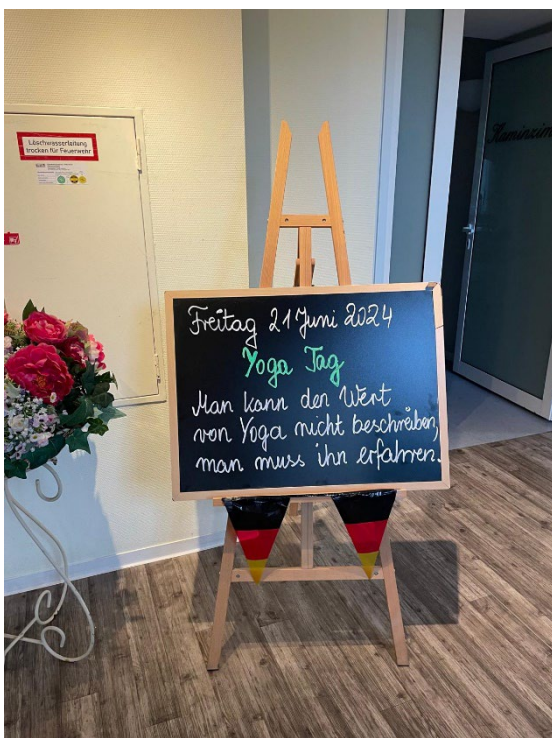 Löschwasserleitung
trocken für Feuerwehr
Freitag 21 Juni 2024
Yoga Tag
Man kann den Wert
von Yoga nicht beschreiben,
man muss ihn erfahren.